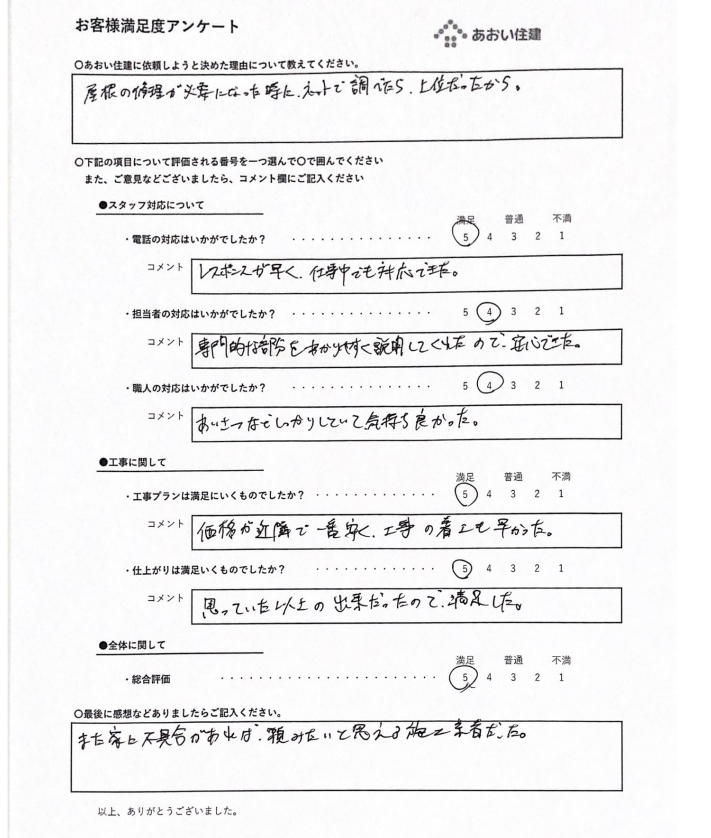 お客様満足度アンケート
あおい住建
〇あおい住建に依頼しようと決めた理由について教えてください。
屋根の修理が必要になった時に、ネットで調べたら、上位だったから。
〇下記の項目について評価される番号を一つ選んで〇で囲んでください
また、ご意見などございましたら、コメント欄にご記入ください
●スタッフ対応について
満足 普通 不満
・電話の対応はいかがでしたか? ・・・・・・・・・・・・・・・ 5 4 3 2 1
コメント レスポンスが早く、仕事中でも対応できた。
・担当者の対応はいかがでしたか? ・・・・・・・・・・・・・・・ 5 4 3 2 1
コメント 専門的な部分をわかりやすく説明してくれたので、安心できた。
・職人の対応はいかがでしたか? ・・・・・・・・・・・・・・・ 5 4 3 2 1
コメント あいさつなどしっかりしていて気持ち良かった。
●工事に関して
満足 普通 不満
・工事プランは満足にいくものでしたか? ・・・・・・・・・・・・・ 5 4 3 2 1
コメント 価格が近隣で一番安く、工事の着工も早かった。
・仕上がりは満足いくものでしたか? ・・・・・・・・・・・・・ 5 4 3 2 1
コメント 思っていた以上の出来だったので、満足した。
●全体に関して
満足 普通 不満
・総合評価 ・・・・・・・・・・・・・・・・・・・・・・・ 5 4 3 2 1
〇最後に感想などありましたらご記入ください。
また家に不具合があれば、頼みたいと思える施工業者だった。
以上、ありがとうございました。